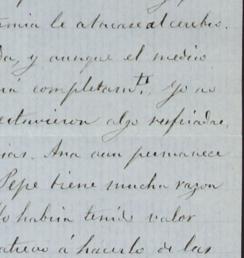 le atacase al cerebro.
y aunque el medico
completamts. Yo no
estuvieron algo resfriados,
Ana aun permanece
Pepe tiene mucha razon
habria tenido valor
atrevo á hacerlo de las